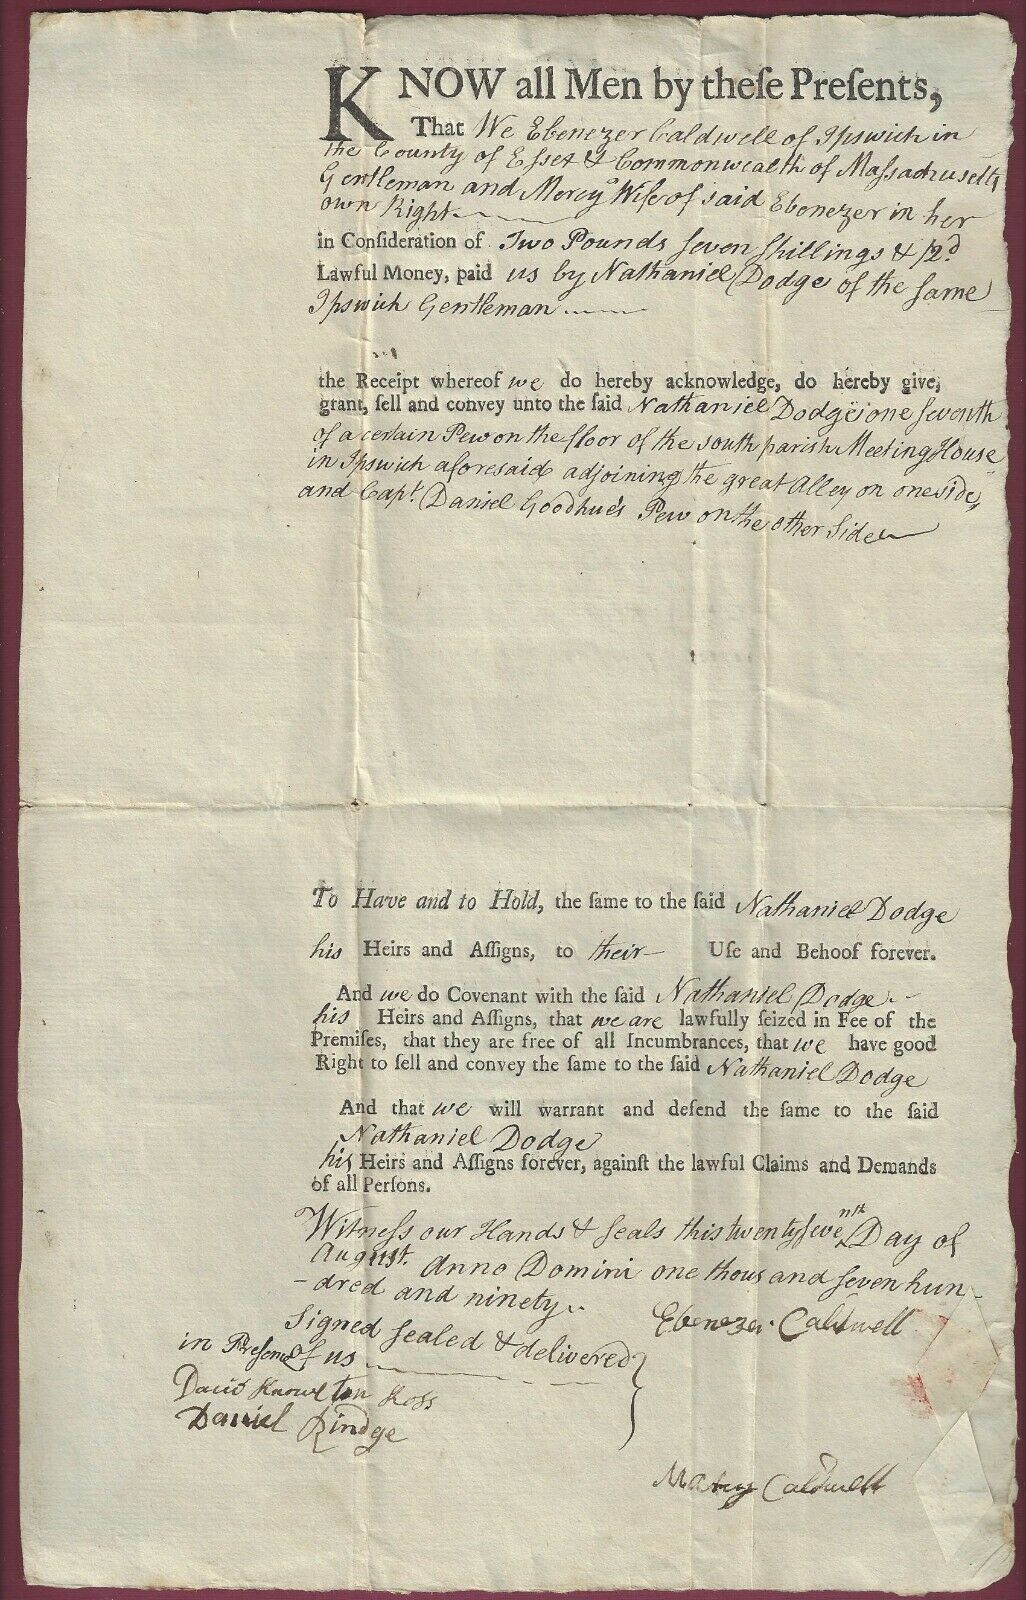 KNOW all Men by theſe Preſents,
That We Ebenezer Caldwell of Ipswich in
the County of Essex & Commonwealth of Massachusetts
Gentleman and Mercy Wife of said Ebenezer in her
own Right
in Conſideration of Two Pounds seven shillings &
Lawful Money, paid us by Nathaniel Dodge of the same
Ipswich Gentleman
the Receipt whereof we do hereby acknowledge, do hereby give,
grant, ſell and convey unto the ſaid Nathaniel Dodge one seventh
of a certain Pew on the floor of the south parish Meeting House
in Ipswich aforesaid adjoining the great Alley on one side,
and Capt. Daniel Goodhue's Pew on the other Side
To Have and to Hold, the ſame to the ſaid Nathaniel Dodge
his Heirs and Aſſigns, to their Uſe and Behoof forever.
And we do Covenant with the ſaid Nathaniel Dodge
his Heirs and Aſſigns, that we are lawfully ſeized in Fee of the
Premiſes, that they are free of all Incumbrances, that we have good
Right to ſell and convey the ſame to the ſaid Nathaniel Dodge
And that we will warrant and defend the ſame to the ſaid
Nathaniel Dodge
his Heirs and Aſſigns forever, againſt the lawful Claims and Demands
of all Perſons.
Witness our Hands & seals this twenty seventh Day of
August. Anno Domini one thousand seven hun-
-dred and ninety
Signed sealed & delivered
in Presence of us
Ebenezer Caldwell
David Knowlton Ross
Daniel Rindge
Marcy Caldwell